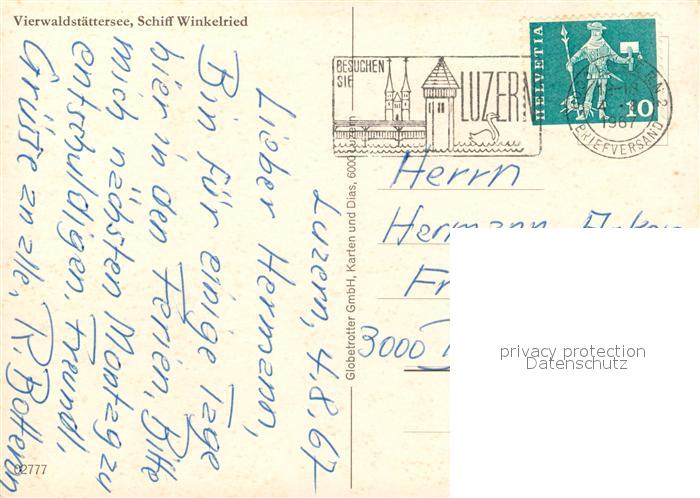 Vierwaldstättersee, Schiff Winkelried
Luzern, 4.8.67
Lieber Hermann,
Bin für einige Tage
hier in den Ferien, Bitte
mich nächsten Montag zu
entschuldigen. Freundl.
Grüsse an alle, R. Botteron
02777
Globetrotter GmbH, Karten und Dias, 6000 Luzern
BESUCHEN
SIE
LUZERN
HELVETIA
10
1967
BRIEFVERSAND
Herrn
Hermann
3000
privacy protection
Datenschutz